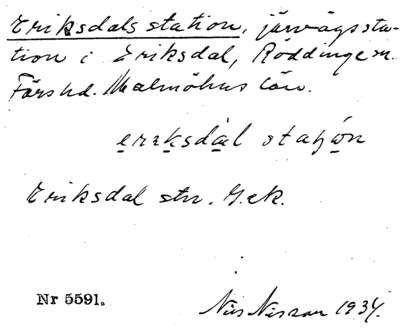 Eriksdals station, järvägssta-
tion i Eriksdal, Röddinge sn.
Färs hd. Malmöhus län.
eriksdal
Eriksdal stn. G.ek.
Nr 5591.
Nils Nilsson 1934.